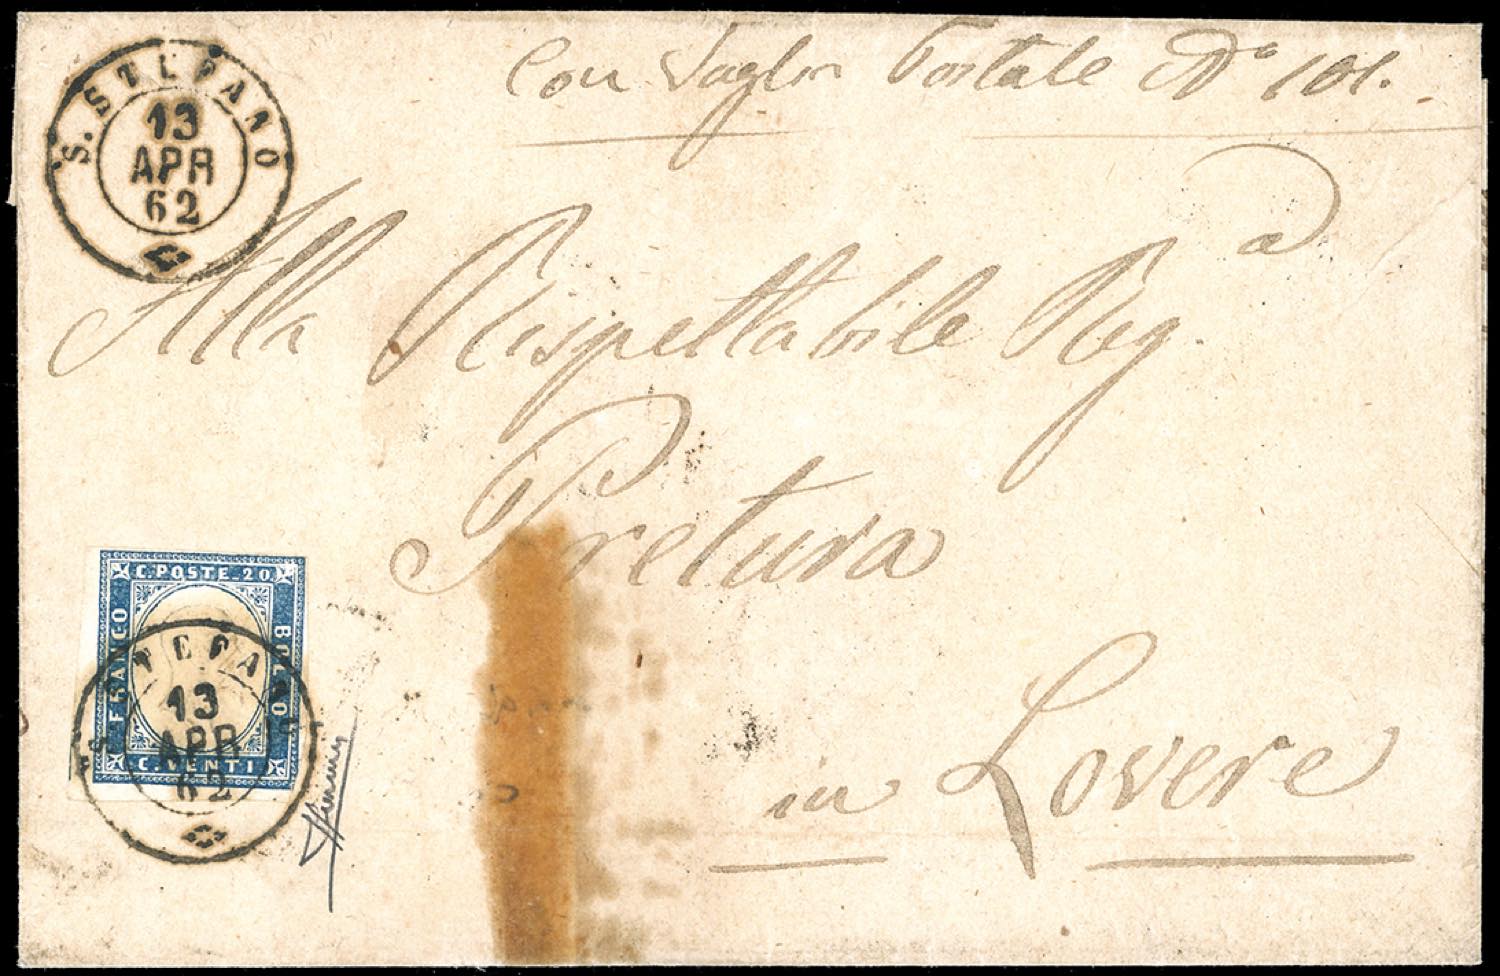 Con Vaglia Postale N° 101.
S. STEFANO
13
APR
62
Alla Rispettabile Reg.a
Pretura
in Lovere
C. POSTE 20
FRANCO
BOLLO
C. VENTI
S. STEFANO
13
APR
62